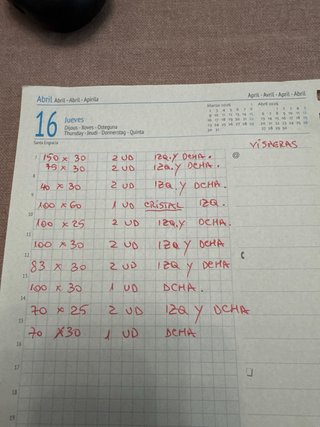 Abril Abril · Abril · Apirila
April · Avril · Aprile · Abril
16 Jueves
Dijous · Xoves · Osteguna
Thursday · Jeudi · Donnerstag · Quinta
Santa Engracia
Marzo 2026 Abril 2026
VISERAS
150 x 30 2 UD IZQ. Y DCHA.
75 x 30 2 UD IZQ. Y DCHA.
40 x 30 2 UD IZQ Y DCHA.
100 x 60 1 UD CRISTAL IZQ.
100 x 25 2 UD IZQ. Y DCHA.
100 x 30 2 UD IZQ Y DCHA
83 x 30 2 UD IZQ Y DCHA
100 x 30 1 UD DCHA.
70 x 25 2 UD IZQ Y DCHA
70 x 30 1 UD DCHA